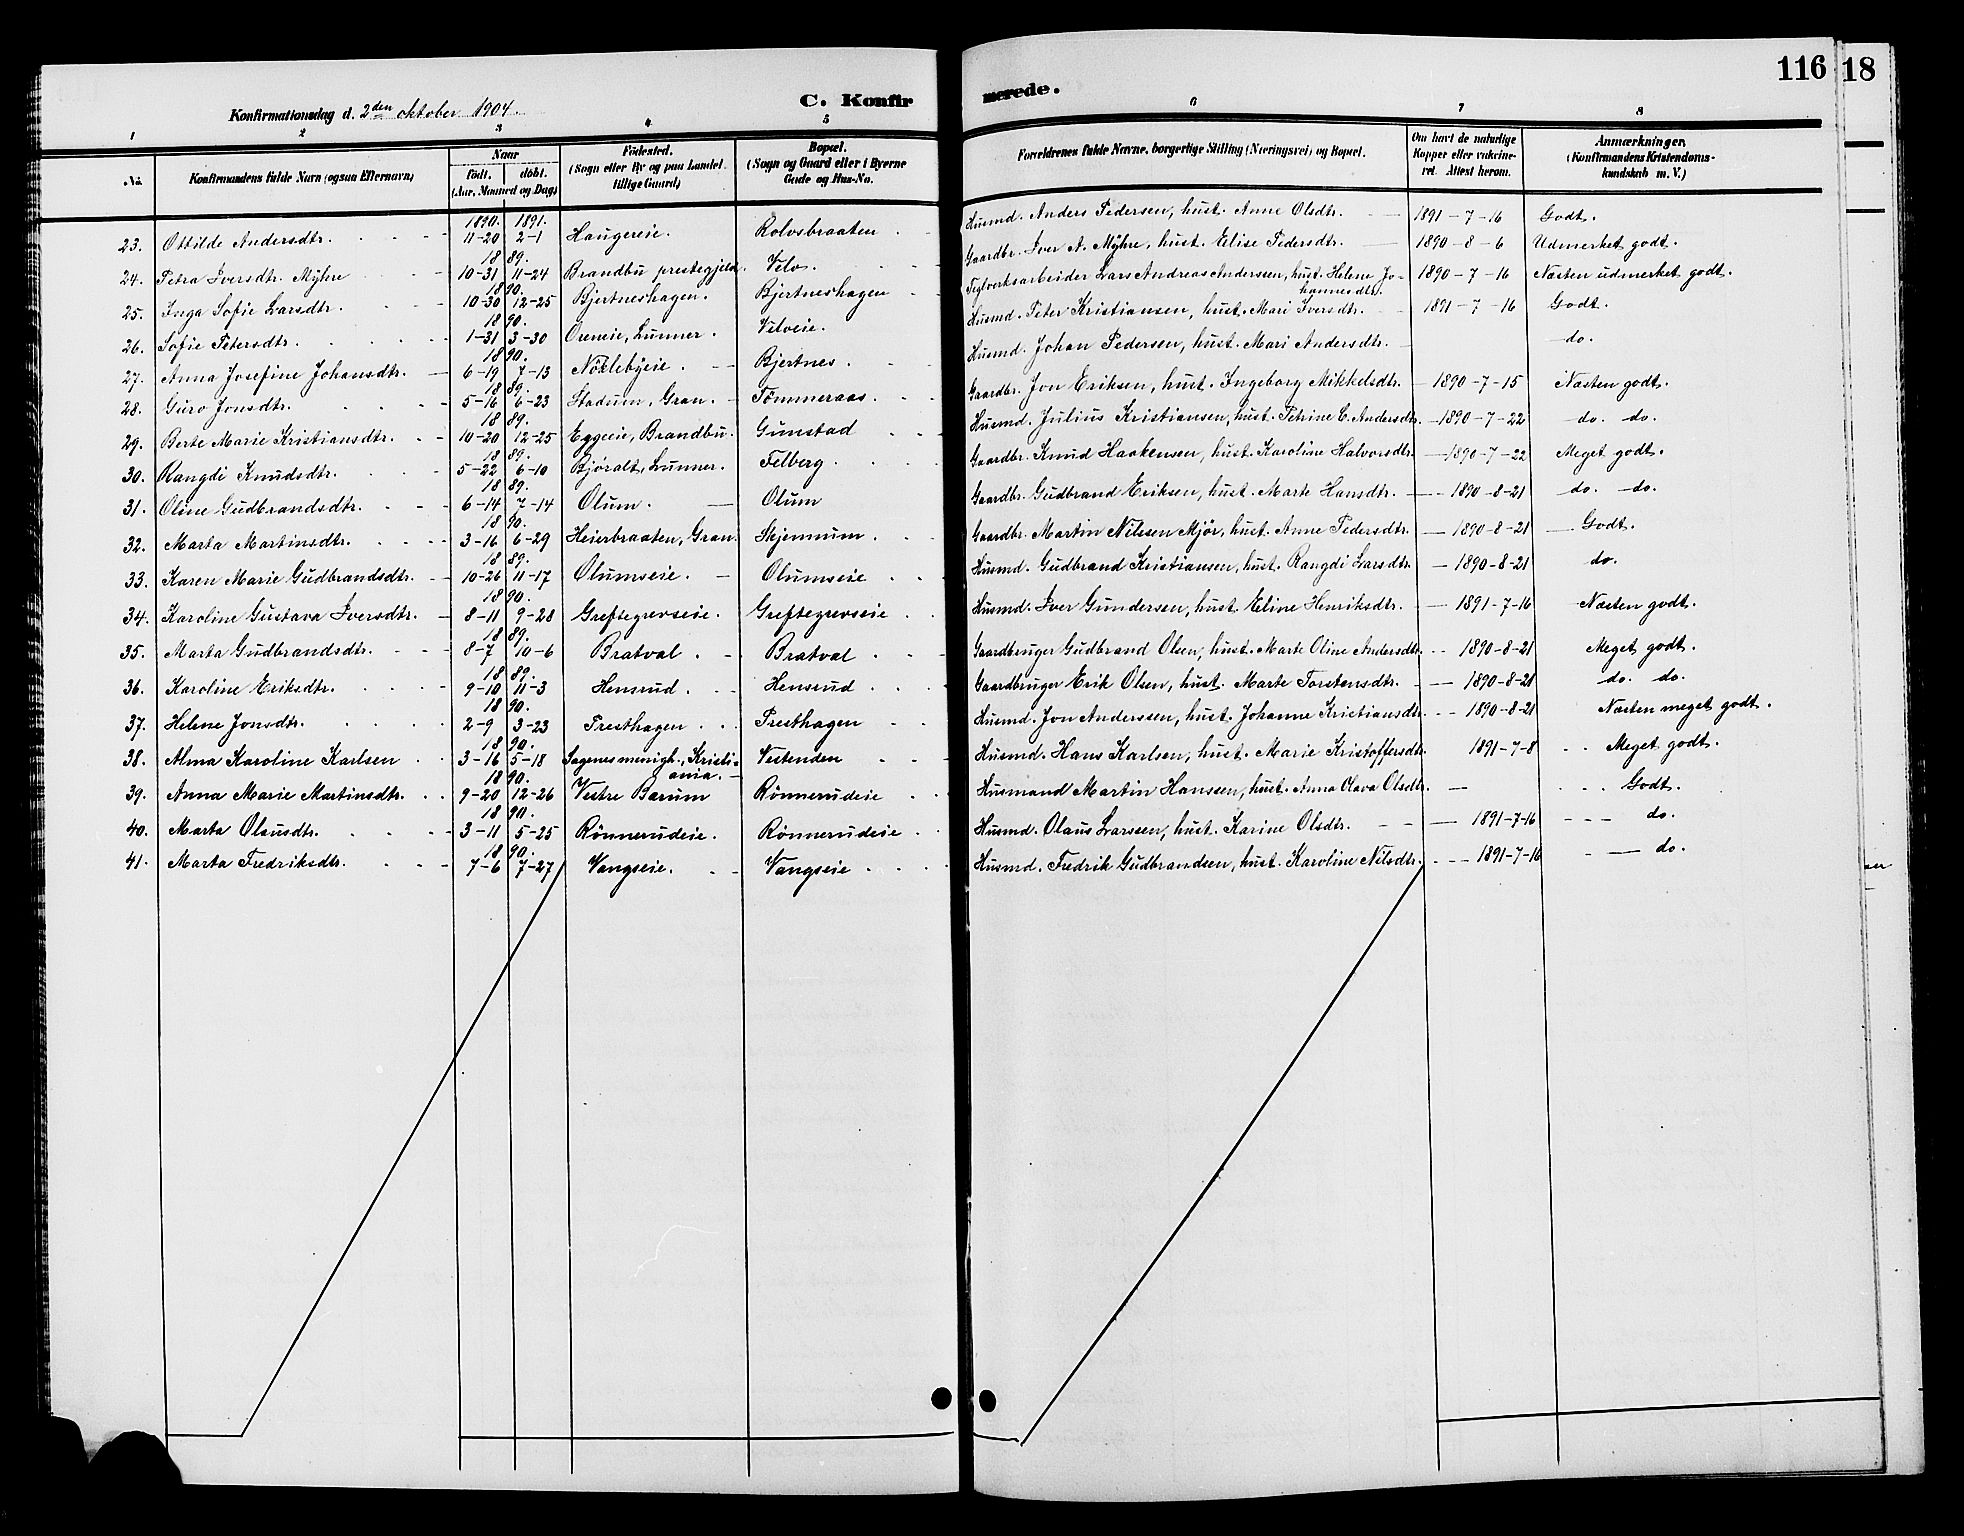 116
18
C. Konfirmerede.
Konfirmationsdag d. 2den oktober 1904.
1 2 3 4 5 6 7 8
No.
Konfirmandens fulde Navn (ogsaa Efternavn)
Naar
født. døbt.
(Aar, Maaned og Dag)
Fødested.
(Sogn eller By og paa Landet tillige Gaard)
Bopæl.
(Sogn og Gaard eller i Byerne Gade og Hus-No.
Forældrenes fulde Navne, borgerlige Stilling (Næringsvei) og Bopæl.
Om havt de naturlige Kopper eller vaksineret. Attest herom.
Anmærkninger.
(Konfirmandens Kristendomskundskab m. V.)
23. Ottilde Andersdtr. 1890. 11-20 1891. 2-1 Haugereie. Rolvsbraaten Husmd. Anders Pedersen, hust. Anne Olsdtr. 1891-7-16 Godt.
24. Petra Iversdtr. Myhre 1889. 10-31 11-24 Brandbu prestegjeld. Velo. Gaardbr. Iver A. Myhre, hust. Elise Pedersdtr. 1890-8-6 Udmerket godt.
25. Inga Sofie Larsdtr. 1890. 10-30 12-25 Bjertneshagen. Bjertneshagen Teglverksarbeider Lars Andreas Anderssen, hust. Helene Johannesdtr. 1890-7-16 Næsten udmerket godt.
26. Sofie Petersdtr. 1890. 1-31 3-30 Oreneie, Lunner. Velveie. Husmd. Peter Kristiansen, hust. Mari Iversdtr. 1891-7-16 Godt.
27. Anna Josefine Johansdtr. 1890. 6-19 7-13 Nöklebyeie. Bjertnes. Husmd. Johan Pedersen, hust. Mari Andersdtr. do.
28. Guro Jonsdtr. 1889. 5-16 6-23 Stadum, Gran. Tömmeraas. Gaardbr. Jon Eriksen, hust. Ingeborg Mikkelsdtr. 1890-7-15 Næsten godt.
29. Berte Marie Kristiansdtr. 1889. 10-20 12-25 Eggeeie, Brandbu. Gunstad Husmd. Julius Kristiansen, hust. Petrine C. Andersdtr. 1890-7-22 do. do.
30. Rangdi Knudsdtr. 1889. 5-22 6-10 Björalt, Lunner. Felberg. Gaardbr. Knud Haakensen, hust. Karoline Halvorsdtr. 1890-7-22 Meget godt.
31. Oline Gudbrandsdtr. 1889. 6-14 7-14 Olum. Olum Gaardbr. Gudbrand Eriksen, hust. Marte Hansdtr. 1890-8-21 do. do.
32. Marta Martinsdtr. 1890. 3-16 6-29 Heierbraaten, Gran. Skjennum. Gaardbr. Martin Nilssen Mjör, hust. Anne Pedersdtr. 1890-8-21 Godt.
33. Karen Marie Gudbrandsdtr. 1889. 10-26 11-17 Olumseie. Olumseie Husmd. Gudbrand Kristiansen, hust. Rangdi Larsdtr. 1890-8-21 do.
34. Karoline Gustava Iversdtr. 1890. 8-11 9-28 Greftegrevseie. Greftegrevseie Husmd. Iver Gundersen, hust. Eline Henriksdtr. 1891-7-16 Næsten godt.
35. Marta Gudbrandsdtr. 1889. 8-7 10-6 Bratval. Bratval Gaardbruger Gudbrand Olsen, hust. Marte Oline Andersdtr. 1890-8-21 Meget godt.
36. Karoline Eriksdtr. 1889. 9-10 11-3 Hensrud. Hensrud Gaardbruger Erik Olsen, hust. Marte Torstensdtr. 1890-8-21 do. do.
37. Helene Jonsdtr. 1890. 2-9 3-23 Presthagen. Presthagen Husmd. Jon Anderssen, hust. Johanne Kristiansdtr. 1890-8-21 Næsten meget godt.
38. Alma Karoline Karlsen 1890. 3-16 5-18 Sagenes menigh., Kristiania. Vestenden Husmd. Hans Karlsen, hust. Marie Kristoffersdtr. 1891-7-8 Meget godt.
39. Anna Marie Martinsdtr. 1890. 9-20 12-26 Vestre Bærum Rönnerudeie Husmand Martin Hansen, hust. Anna Olava Olsdtr. Godt.
40. Marta Olausdtr. 1890. 3-11 5-25 Rönnerudeie. Rönnerudeie Husmd. Olaus Larssen, hust. Karine Olsdtr. 1891-7-16 do.
41. Marta Fredriksdtr. 1890. 7-6 7-27 Vangseie. Vangseie Husmd. Fredrik Gudbrandsen, hust. Karoline Nilsdtr. 1891-7-16 do.